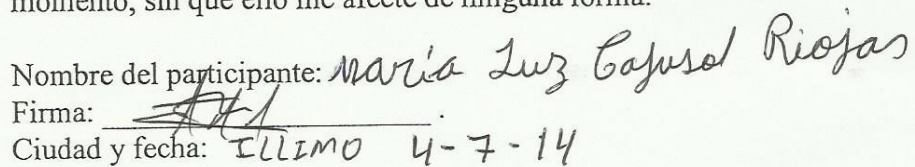 momento, sin que ello me afecte de ninguna forma.
Nombre del participante: María Luz Cajusol Riojas
Firma:
Ciudad y fecha: ILLIMO 4-7-14